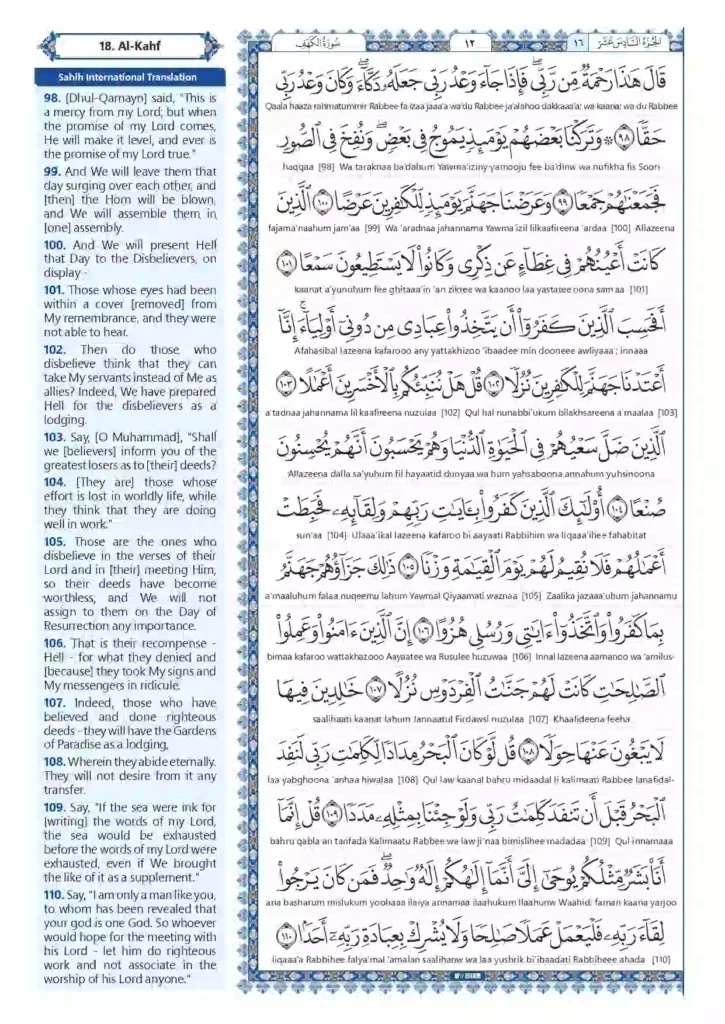 18. Al-Kahf
Sahih International Translation
98. [Dhul-Qarnayn] said, "This is
a mercy from my Lord; but when
the promise of my Lord comes,
He will make it level, and ever is
the promise of my Lord true."
99. And We will leave them that
day surging over each other, and
[then] the Horn will be blown,
and We will assemble them in
[one] assembly.
100. And We will present Hell
that Day to the Disbelievers, on
display -
101. Those whose eyes had been
within a cover [removed] from
My remembrance, and they were
not able to hear.
102. Then do those who
disbelieve think that they can
take My servants instead of Me as
allies? Indeed, We have prepared
Hell for the disbelievers as a
lodging.
103. Say, [O Muhammad], "Shall
we [believers] inform you of the
greatest losers as to [their] deeds?
104. [They are] those whose
effort is lost in worldly life, while
they think that they are doing
well in work."
105. Those are the ones who
disbelieve in the verses of their
Lord and in [their] meeting Him,
so their deeds have become
worthless; and We will not
assign to them on the Day of
Resurrection any importance.
106. That is their recompense -
Hell - for what they denied and
[because] they took My signs and
My messengers in ridicule.
107. Indeed, those who have
believed and done righteous
deeds - they will have the Gardens
of Paradise as a lodging,
108. Wherein they abide eternally.
They will not desire from it any
transfer.
109. Say, "If the sea were ink for
[writing] the words of my Lord,
the sea would be exhausted
before the words of my Lord were
exhausted, even if We brought
the like of it as a supplement."
110. Say, "I am only a man like you,
to whom has been revealed that
your god is one God. So whoever
would hope for the meeting with
his Lord - let him do righteous
work and not associate in the
worship of his Lord anyone."
سُورَةُ الكَهْفِ ١٢ ١٦ الجُزْءُ السَّادِسَ عَشَرَ
قَالَ هَٰذَا رَحْمَةٌ مِّن رَّبِّي ۖ فَإِذَا جَاءَ وَعْدُ رَبِّي جَعَلَهُ دَكَّاءَ ۖ وَكَانَ وَعْدُ رَبِّي
Qaala haaza rahmatummir Rabbee fa izaa jaaa'a wa'du Rabbee ja'alahoo dakkaaa'a; wa kaana; wa du Rabbee
حَقًّا ﴿٩٨﴾ ۞ وَتَرَكْنَا بَعْضَهُمْ يَوْمَئِذٍ يَمُوجُ فِي بَعْضٍ ۖ وَنُفِخَ فِي الصُّورِ
haqqaa [98] Wa taraknaa ba'dahum Yawma'iziny yamooju fee ba'dinw wa nufikha fis Soori
فَجَمَعْنَاهُمْ جَمْعًا ﴿٩٩﴾ وَعَرَضْنَا جَهَنَّمَ يَوْمَئِذٍ لِّلْكَافِرِينَ عَرْضًا ﴿١٠٠﴾ الَّذِينَ
fajama'naahum jam'aa [99] Wa 'aradnaa jahannama Yawma'izil lilkaafireena 'ardaa [100] Allazeena
كَانَتْ أَعْيُنُهُمْ فِي غِطَاءٍ عَن ذِكْرِي وَكَانُوا لَا يَسْتَطِيعُونَ سَمْعًا ﴿١٠١﴾
kaanat a'yunuhum fee ghitaaa'in 'an zikree wa kaanoo laa yastatee'oona sam'aa [101]
أَفَحَسِبَ الَّذِينَ كَفَرُوا أَن يَتَّخِذُوا عِبَادِي مِن دُونِي أَوْلِيَاءَ ۚ إِنَّا
Afahasibal lazeena kafarooo any yattakhizoo 'ibaadee min dooneee awliyaaa'; innaaa
أَعْتَدْنَا جَهَنَّمَ لِلْكَافِرِينَ نُزُلًا ﴿١٠٢﴾ قُلْ هَلْ نُنَبِّئُكُم بِالْأَخْسَرِينَ أَعْمَالًا ﴿١٠٣﴾
a'tadnaa jahannama lil kaafireena nuzulaa [102] Qul hal nunabbi'ukum bilakhsareena a'maalaa [103]
الَّذِينَ ضَلَّ سَعْيُهُمْ فِي الْحَيَاةِ الدُّنْيَا وَهُمْ يَحْسَبُونَ أَنَّهُمْ يُحْسِنُونَ
Allazeena dalla sa'yuhum fil hayaatid dunyaa wa hum yahsaboona annahum yuhsinoona
صُنْعًا ﴿١٠٤﴾ أُولَٰئِكَ الَّذِينَ كَفَرُوا بِآيَاتِ رَبِّهِمْ وَلِقَائِهِ فَحَبِطَتْ
sun'aa [104] Ulaaa'ikal lazeena kafaroo bi aayaati Rabbihim wa liqaaa'ihee fahabitat
أَعْمَالُهُمْ فَلَا نُقِيمُ لَهُمْ يَوْمَ الْقِيَامَةِ وَزْنًا ﴿١٠٥﴾ ذَٰلِكَ جَزَاؤُهُمْ جَهَنَّمُ
a'maaluhum falaa nuqeemu lahum Yawmal Qiyaamati waznaa [105] Zaalika jazaaa'uhum jahannamu
بِمَا كَفَرُوا وَاتَّخَذُوا آيَاتِي وَرُسُلِي هُزُوًا ﴿١٠٦﴾ إِنَّ الَّذِينَ آمَنُوا وَعَمِلُوا
bimaa kafaroo wattakhazooo Aayaatee wa Rusulee huzuwaa [106] Innal lazeena aamanoo wa 'amilus-
الصَّالِحَاتِ كَانَتْ لَهُمْ جَنَّاتُ الْفِرْدَوْسِ نُزُلًا ﴿١٠٧﴾ خَالِدِينَ فِيهَا
saalihaati kaanat lahum Jannaatul Firdawsi nuzulaa [107] Khaalideena feeha
لَا يَبْغُونَ عَنْهَا حِوَلًا ﴿١٠٨﴾ قُل لَّوْ كَانَ الْبَحْرُ مِدَادًا لِّكَلِمَاتِ رَبِّي لَنَفِدَ
laa yabghoona 'anhaa hiwalaa [108] Qul law kaanal bahru midaadal li kalimaati Rabbee lanafidal-
الْبَحْرُ قَبْلَ أَن تَنفَدَ كَلِمَاتُ رَبِّي وَلَوْ جِئْنَا بِمِثْلِهِ مَدَدًا ﴿١٠٩﴾ قُلْ إِنَّمَا
bahru qabla an tanfada Kalimaatu Rabbee wa law ji'naa bimislihee madadaa [109] Qul innamaaa
أَنَا بَشَرٌ مِّثْلُكُمْ يُوحَىٰ إِلَيَّ أَنَّمَا إِلَٰهُكُمْ إِلَٰهٌ وَاحِدٌ ۖ فَمَن كَانَ يَرْجُوا
ana basharum mislukum yoohaaa ilaiya annamaa ilaahukum Ilaahunw Waahid; faman kaana yarjoo
لِقَاءَ رَبِّهِ فَلْيَعْمَلْ عَمَلًا صَالِحًا وَلَا يُشْرِكْ بِعِبَادَةِ رَبِّهِ أَحَدًا ﴿١١٠﴾
liqaaa'a Rabbihee falya'mal 'amalan saalihanw wa laa yushrik bi'ibaadati Rabbiheee ahada [110]